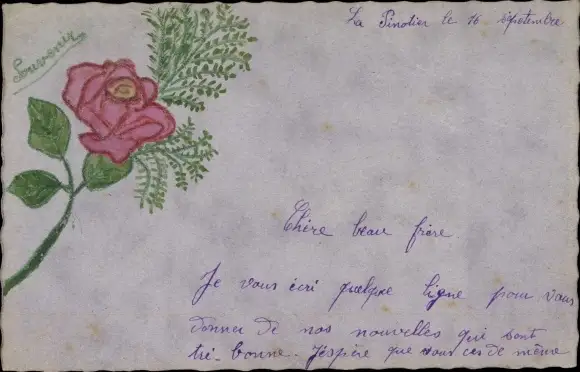 Souvenir
La Pinotier le 16 septembre
Chère beau frère
Je vous écri quelque ligne pour vous
donner de nos nouvelles qui sont
tré-bonne. J'espère que vous ces de même